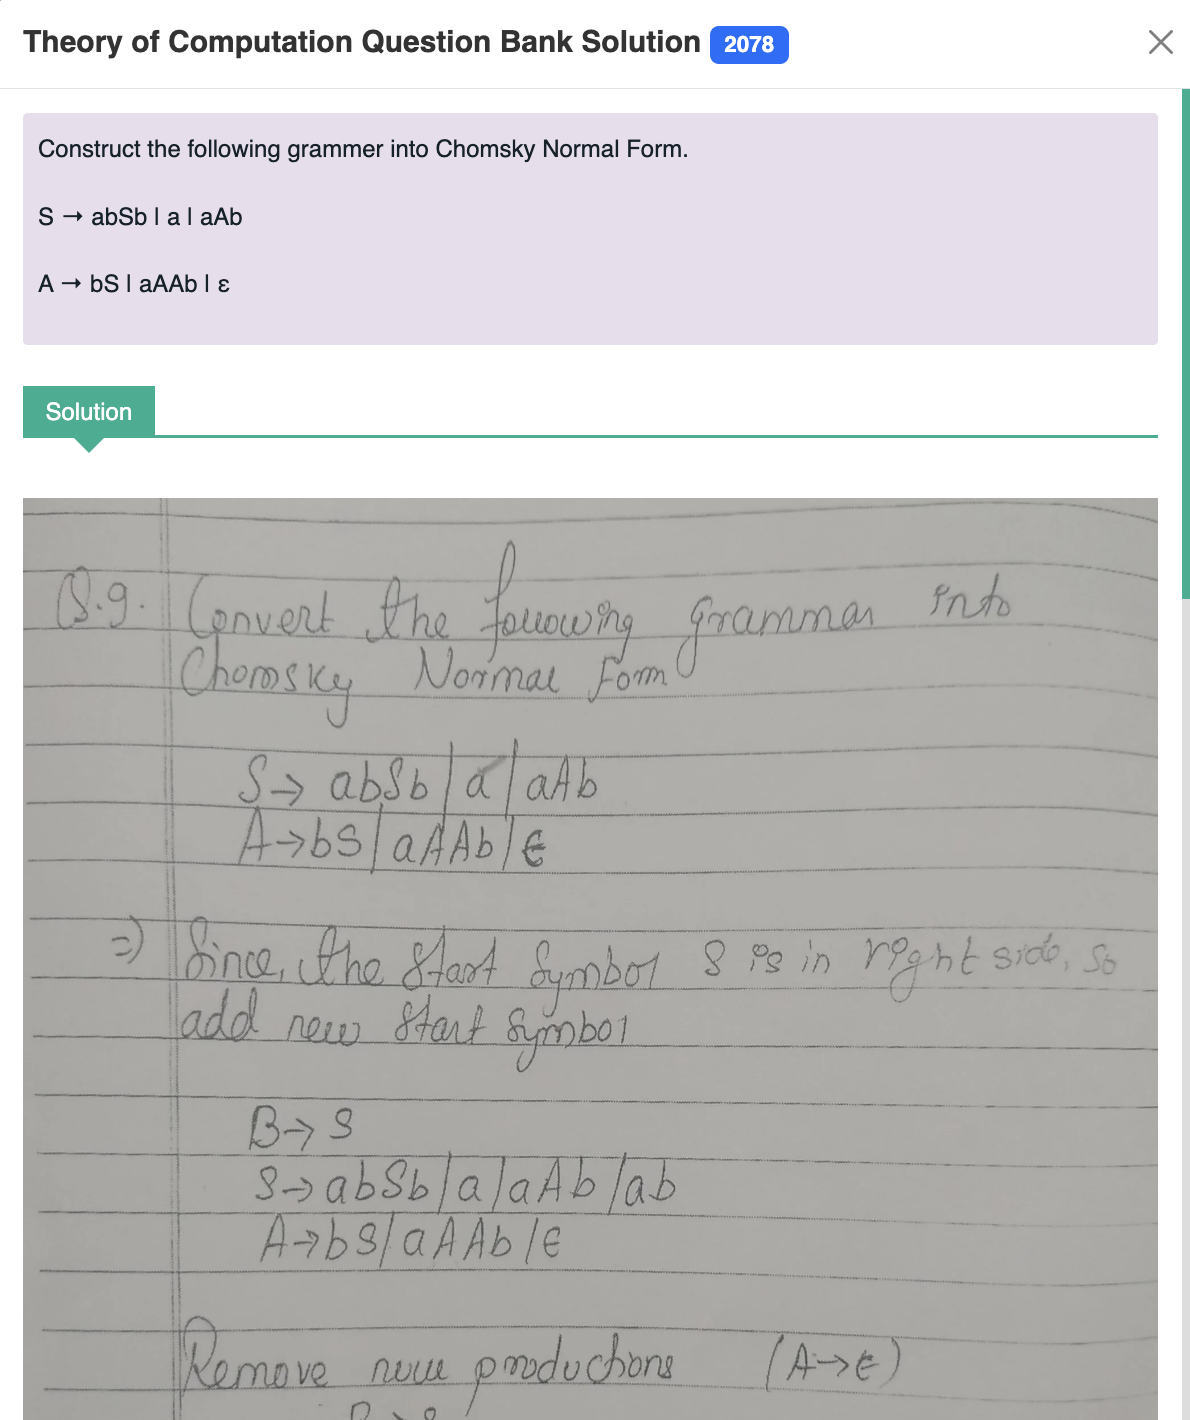 Theory of Computation Question Bank Solution 2078
Construct the following grammer into Chomsky Normal Form.
S → abSb | a | aAb
A → bS | aAAb | ε
Solution
Q.9. Convert the following grammar into
Chomsky Normal Form
S→ abSb | a | aAb
A→bS | aAAb | ε
⇒) Since, the start Symbol S is in right side, so
add new start symbol
B→ S
S→ abSb | a | aAb | ab
A→bS | aAAb | ε
Remove null productions (A→ε)
B→S